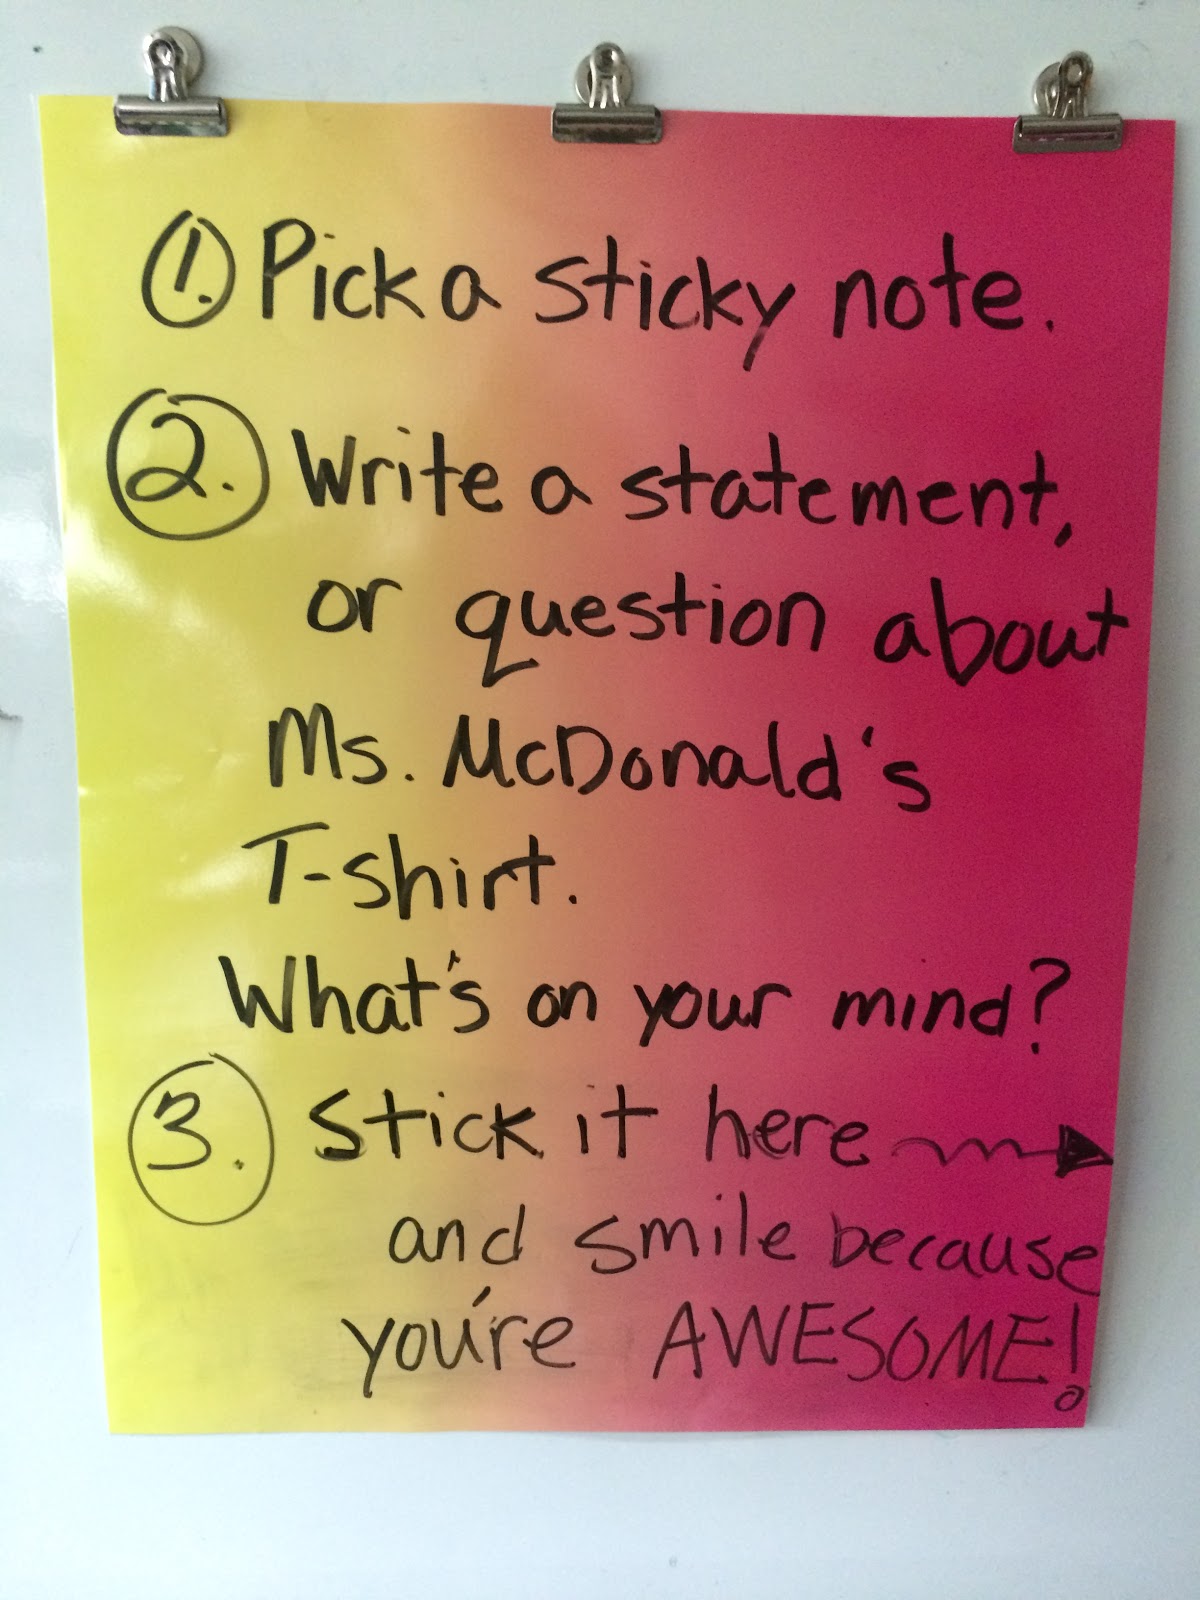 1. Pick a sticky note.
2. Write a statement,
or question about
Ms. McDonald's
T-shirt.
What's on your mind?
3. Stick it here
and smile because
you're AWESOME!